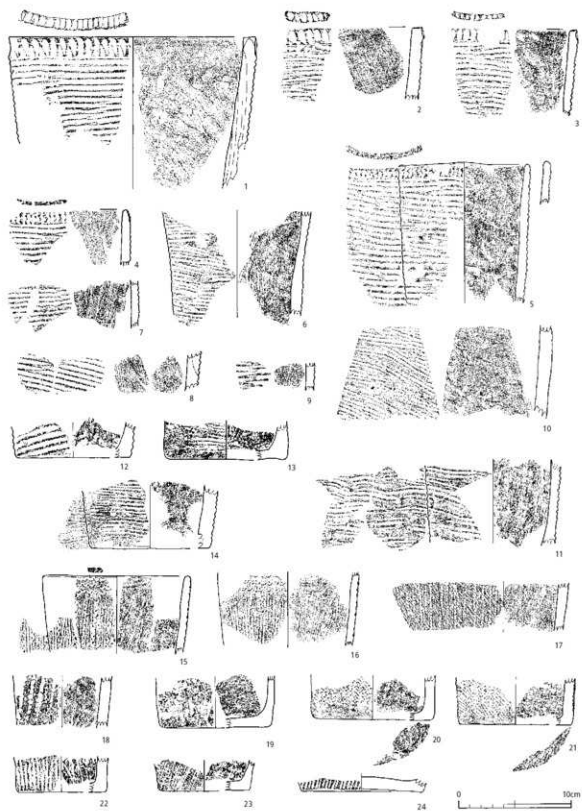 1
2
3
4
5
6
7
8
9
10
11
12
13
14
15
16
17
18
19
20
21
22
23
24
0 10cm